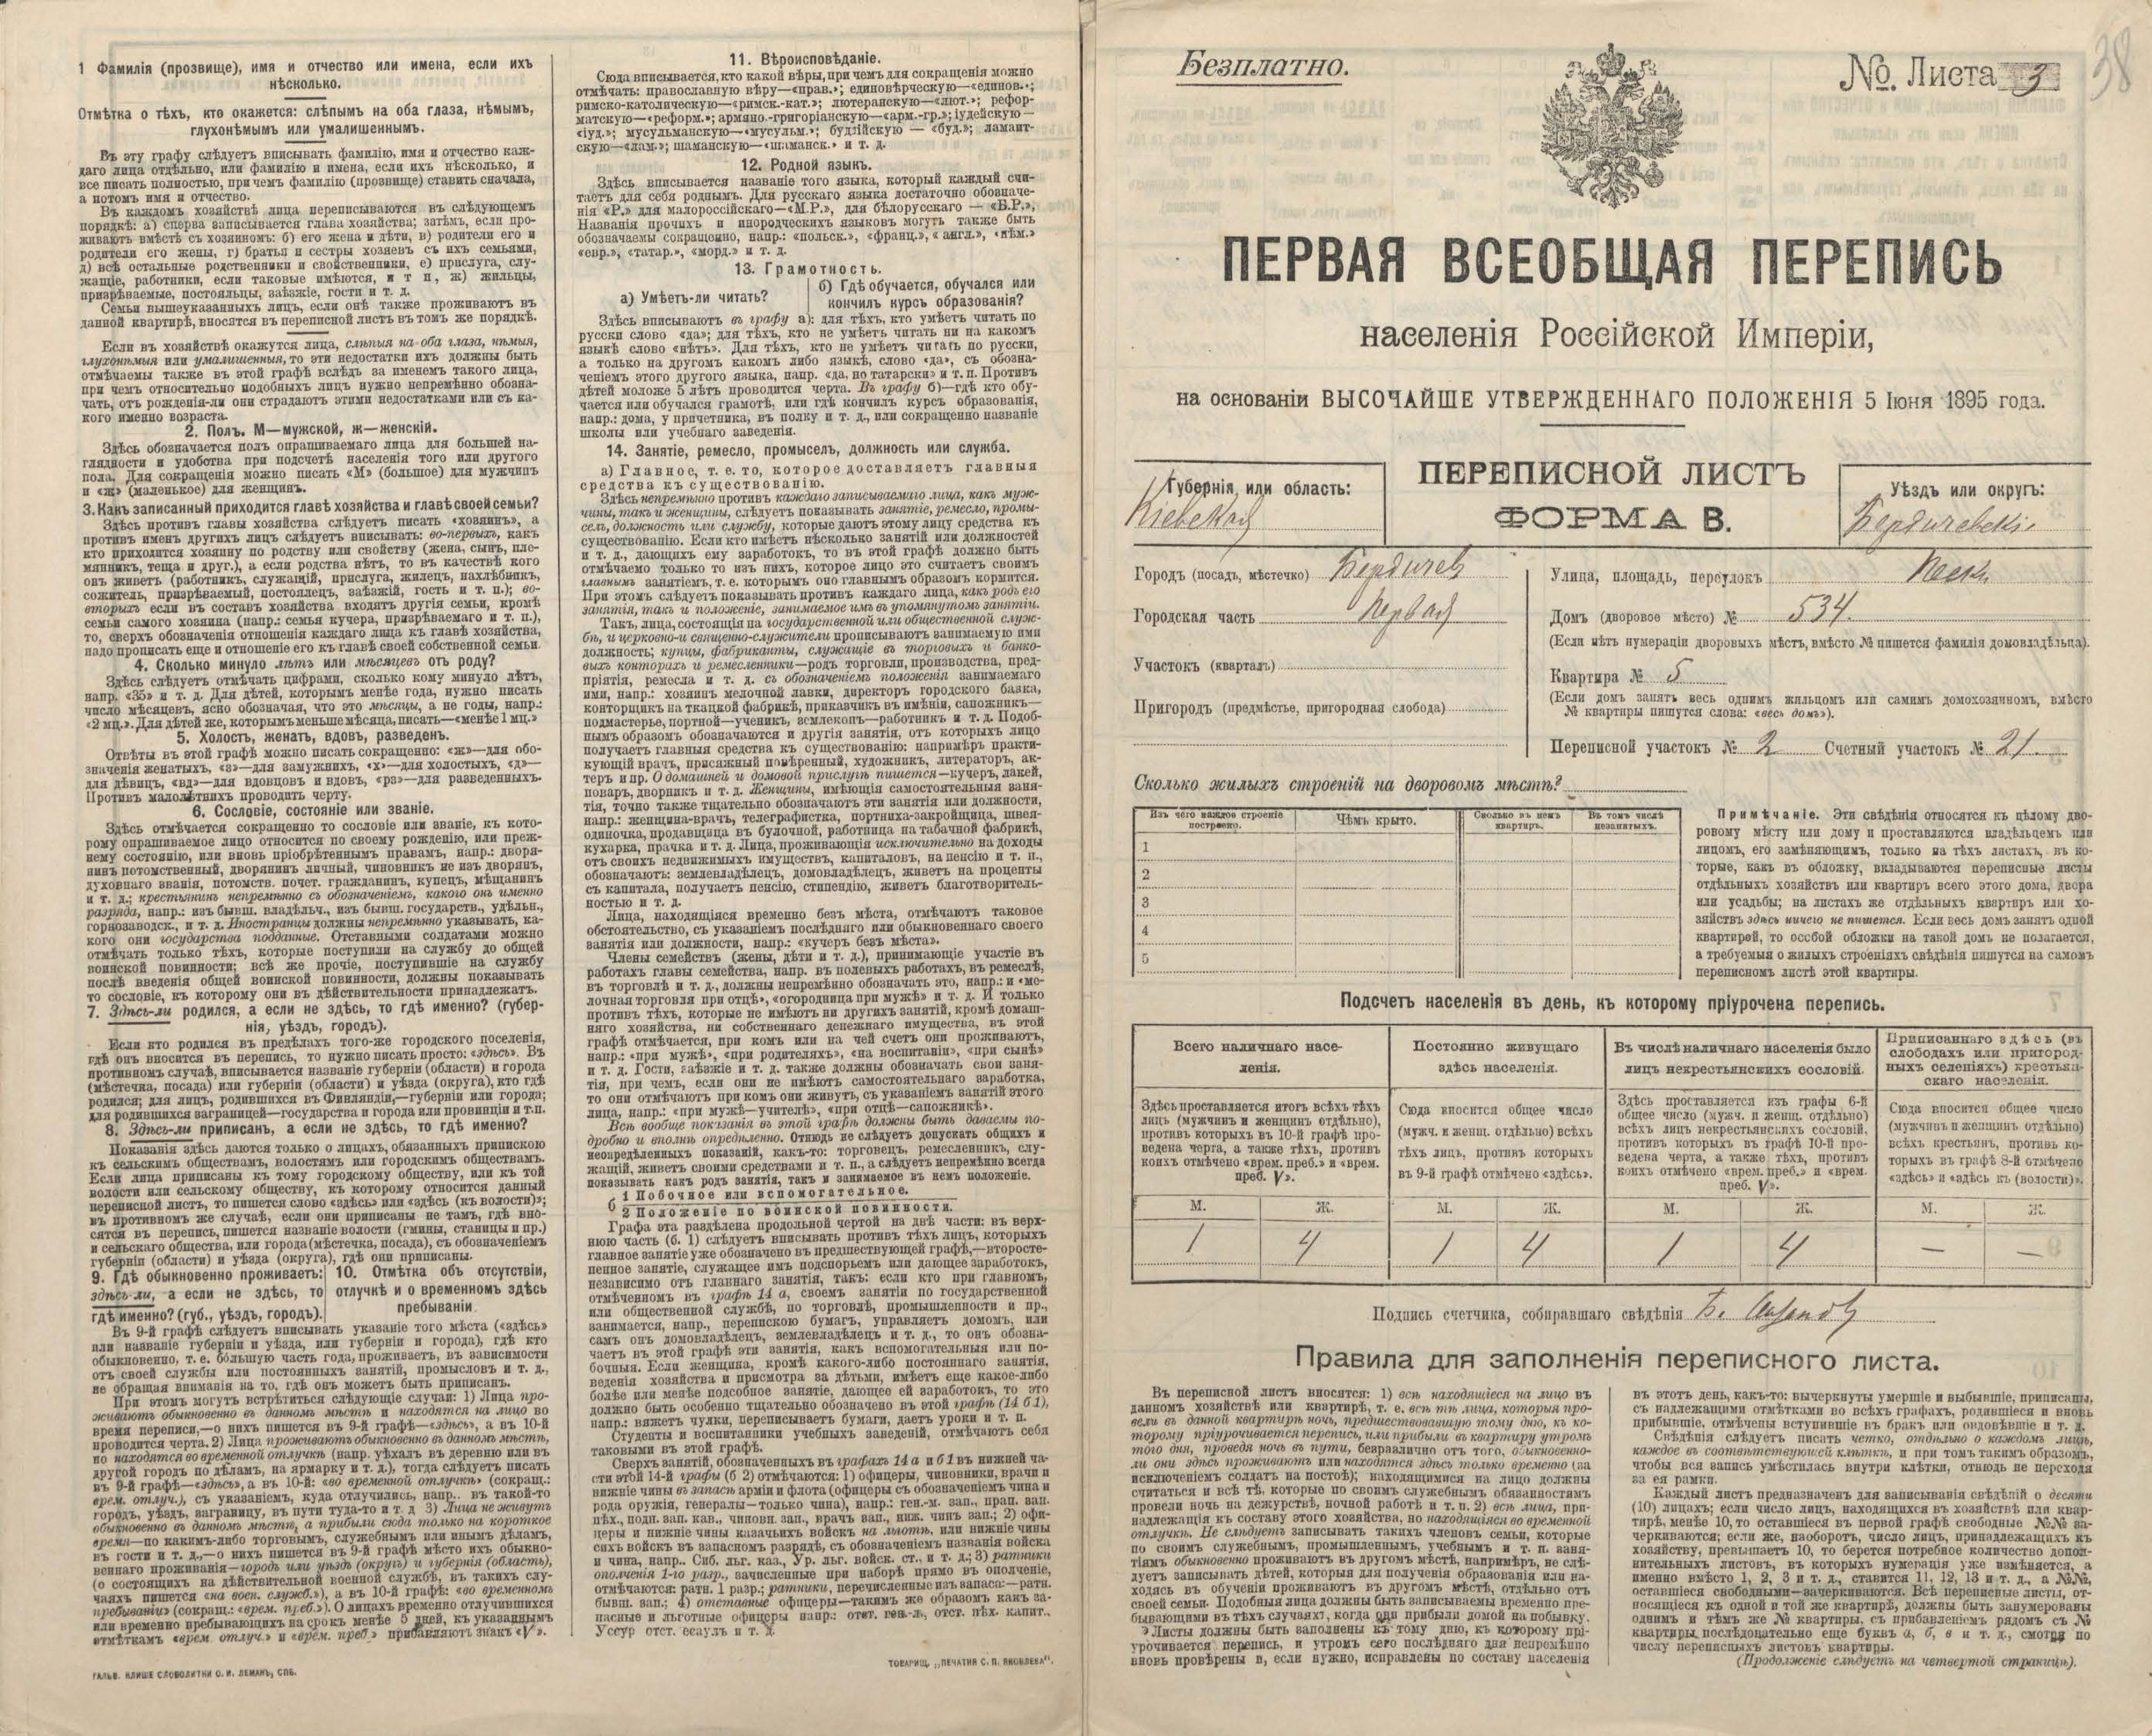 1 Фамилія (прозвище), имя и отчество или имена, если ихъ
нѣсколько.
Отмѣтка о тѣхъ, кто окажется: слѣпымъ на оба глаза, нѣмымъ,
глухонѣмымъ или умалишеннымъ.
Въ эту графу слѣдуетъ вписывать фамилію, имя и отчество каж-
даго лица отдѣльно, или фамилію и имена, если ихъ нѣсколько, и
все писать полностью, при чемъ фамилію (прозвище) ставить сначала,
а потомъ имя и отчество.
Въ каждомъ хозяйствѣ лица переписываются въ слѣдующемъ
порядкѣ: а) сперва записывается глава хозяйства; затѣмъ, если про-
живаютъ вмѣстѣ съ хозяиномъ: б) его жена и дѣти, в) родители его и
родители его жены, г) братья и сестры хозяевъ съ ихъ семьями,
д) всѣ остальные родственники и свойственники, е) прислуга, слу-
жащіе, работники, если таковые имѣются, и т п, ж) жильцы,
призрѣваемые, постояльцы, заѣзжіе, гости и т. д.
Семьи вышеуказанныхъ лицъ, если онѣ также проживаютъ въ
данной квартирѣ, вносятся въ переписной листъ въ томъ же порядкѣ.
Если въ хозяйствѣ окажутся лица, слѣпыя на оба глаза, нѣмыя,
глухонѣмыя или умалишенныя, то эти недостатки ихъ должны быть
отмѣчаемы также въ этой графѣ вслѣдъ за именемъ такого лица,
при чемъ относительно подобныхъ лицъ нужно непремѣнно обозна-
чать, отъ рожденія-ли они страдаютъ этими недостатками или съ ка-
кого именно возраста.
2. Полъ. М—мужской, ж—женскій.
Здѣсь обозначается полъ опрашиваемаго лица для большей на-
глядности и удобства при подсчетѣ населенія того или другого
пола. Для сокращенія можно писать «М» (большое) для мужчинъ
и «ж» (маленькое) для женщинъ.
3. Какъ записанный приходится главѣ хозяйства и главѣ своей семьи?
Здѣсь противъ главы хозяйства слѣдуетъ писать «хозяинъ», а
противъ именъ другихъ лицъ слѣдуетъ вписывать: во-первыхъ, какъ
кто приходится хозяину по родству или свойству (жена, сынъ, пле-
мянникъ, теща и друг.), а если родства нѣтъ, то въ качествѣ кого
онъ живетъ (работникъ, служащій, прислуга, жилецъ, нахлѣбникъ,
сожитель, призрѣваемый, постоялецъ, заѣзжій, гость и т. п.); во-
вторыхъ если въ составъ хозяйства входятъ другія семьи, кромѣ
семьи самого хозяина (напр.: семья кучера, призрѣваемаго и т. п.),
то, сверхъ обозначенія отношенія каждаго лица къ главѣ хозяйства,
надо прописать еще и отношеніе его къ главѣ своей собственной семьи.
4. Сколько минуло лѣтъ или мѣсяцевъ отъ роду?
Здѣсь слѣдуетъ отмѣчать цифрами, сколько кому минуло лѣтъ,
напр. «35» и т. д. Для дѣтей, которымъ менѣе года, нужно писать
число мѣсяцевъ, ясно обозначая, что это мѣсяцы, а не годы, напр.:
«2 мц.». Для дѣтей же, которымъ меньше мѣсяца, писать—«менѣе 1 мц.»
5. Холостъ, женатъ, вдовъ, разведенъ.
Отвѣты въ этой графѣ можно писать сокращенно: «ж»—для обо-
значенія женатыхъ, «з»—для замужнихъ, «х»—для холостыхъ, «д»—
для дѣвицъ, «вд»—для вдовцовъ и вдовъ, «рз»—для разведенныхъ.
Противъ малолѣтнихъ проводить черту.
6. Сословіе, состояніе или званіе.
Здѣсь отмѣчается сокращенно то сословіе или званіе, къ кото-
рому опрашиваемое лицо относится по своему рожденію, или преж-
нему состоянію, или вновь пріобрѣтеннымъ правамъ, напр.: дворя-
нинъ потомственный, дворянинъ личный, чиновникъ не изъ дворянъ,
духовнаго званія, потомств. почет. гражданинъ, купецъ, мѣщанинъ
и т. д.; крестьянинъ непремѣнно съ обозначеніемъ, какого онъ именно
разряда, напр.: изъ бывш. владѣльч., изъ бывш. государств., удѣльн.,
горнозаводск., и т. д. Иностранцы должны непремѣнно указывать, ка-
кого они государства подданные. Отставными солдатами можно
отмѣчать только тѣхъ, которые поступили на службу до общей
воинской повинности; всѣ же прочіе, поступившіе на службу
послѣ введенія общей воинской повинности, должны показывать
то сословіе, къ которому они въ дѣйствительности принадлежатъ.
7. Здѣсь-ли родился, а если не здѣсь, то гдѣ именно? (губер-
нія, уѣздъ, городъ).
Если кто родился въ предѣлахъ того-же городского поселенія,
гдѣ онъ вносится въ перепись, то нужно писать просто: «здѣсь». Въ
противномъ случаѣ, вписывается названіе губерніи (области) и города
(мѣстечка, посада) или губерніи (области) и уѣзда (округа), кто гдѣ
родился; для лицъ, родившихся въ Финляндіи,—губерніи или города;
для родившихся заграницей—государства и города или провинціи и т.п.
8. Здѣсь-ли приписанъ, а если не здѣсь, то гдѣ именно?
Показанія здѣсь даются только о лицахъ, обязанныхъ припискою
къ сельскимъ обществамъ, волостямъ или городскимъ обществамъ.
Если лица приписаны къ тому городскому обществу, или къ той
волости или сельскому обществу, къ которому относится данный
переписной листъ, то пишется слово «здѣсь» или «здѣсь (къ волости)»;
въ противномъ же случаѣ, если они приписаны не тамъ, гдѣ вно-
сятся въ перепись, пишется названіе волости (гмины, станицы и пр.)
и сельскаго общества, или города (мѣстечка, посада), съ обозначеніемъ
губерніи (области) и уѣзда (округа), гдѣ они приписаны.
9. Гдѣ обыкновенно проживаетъ:
здѣсь-ли, а если не здѣсь, то
гдѣ именно? (губ., уѣздъ, городъ).
10. Отмѣтка объ отсутствіи,
отлучкѣ и о временномъ здѣсь
пребываніи.
Въ 9-й графѣ слѣдуетъ вписывать указаніе того мѣста («здѣсь»
или названіе губерніи и уѣзда, или губерніи и города), гдѣ кто
обыкновенно, т. е. бо́льшую часть года, проживаетъ, въ зависимости
отъ своей службы или постоянныхъ занятій, промысловъ и т. д.,
не обращая вниманія на то, гдѣ онъ можетъ быть приписанъ.
При этомъ могутъ встрѣтиться слѣдующіе случаи: 1) Лица про-
живаютъ обыкновенно въ данномъ мѣстѣ и находятся на лицо во
время переписи,—о нихъ пишется въ 9-й графѣ—«здѣсь», а въ 10-й
проводится черта. 2) Лица проживаютъ обыкновенно въ данномъ мѣстѣ,
но находятся во временной отлучкѣ (напр. уѣхалъ въ деревню или въ
другой городъ по дѣламъ, на ярмарку и т. д.), тогда слѣдуетъ писать
въ 9-й графѣ—«здѣсь», а въ 10-й: «во временной отлучкѣ» (сокращ.:
врем. отлуч.), съ указаніемъ, куда отлучились, напр.. въ такой-то
городъ, уѣздъ, заграницу, въ пути туда-то и т. д 3) Лица не живутъ
обыкновенно въ данномъ мѣстѣ, а прибыли сюда только на короткое
время—по какимъ-либо торговымъ, служебнымъ или инымъ дѣламъ,
въ гости и т. д.,—о нихъ пишется въ 9-й графѣ мѣсто ихъ обыкно-
веннаго проживанія—городъ или уѣздъ (округъ) и губернія (область),
(о состоящихъ на дѣйствительной военной службѣ, въ такихъ слу-
чаяхъ пишется «на воен. служб.»), а въ 10-й графѣ: «во временномъ
пребываніи» (сокращ.: «врем. преб.»). О лицахъ временно отлучившихся
или временно пребывающихъ на срокъ менѣе 5 дней, къ указаннымъ
отмѣткамъ «врем. отлуч.» и «врем. преб.» прибавляютъ знакъ «V».
ГАЛЬВ. КЛИШЕ СЛОВОЛИТНИ О. И. ЛЕМАНЪ, СПБ.
11. Вѣроисповѣданіе.
Сюда вписывается, кто какой вѣры, при чемъ для сокращенія можно
отмѣчать: православную вѣру—«прав.»; единовѣрческую—«единов.»;
римско-католическую—«римск.-кат.»; лютеранскую—«лют.»; рефор-
матскую—«реформ.»; армяно.-григоріанскую—«арм.-гр.»; іудейскую—
«іуд.»; мусульманскую—«мусульм.»; буддійскую — «буд.»; ламаит-
скую—«лам.»; шаманскую—«шаманск.» и т. д.
12. Родной языкъ.
Здѣсь вписывается названіе того языка, который каждый счи-
таетъ для себя роднымъ. Для русскаго языка достаточно обозначе-
нія «Р.» для малороссійскаго—«М.Р.», для бѣлорусскаго — «Б.Р.»,
Названія прочихъ и инородческихъ языковъ могутъ также быть
обозначаемы сокращенно, напр.: «польск.», «франц.», « англ.», «нѣм.»
«евр.», «татар.», «морд.» и т. д.
13. Грамотность.
а) Умѣетъ-ли читать?
б) Гдѣ обучается, обучался или
кончилъ курсъ образованія?
Здѣсь вписываютъ въ графу а): для тѣхъ, кто умѣетъ читать по
русски слово «да»; для тѣхъ, кто не умѣетъ читать ни на какомъ
языкѣ слово «нѣтъ». Для тѣхъ, кто не умѣетъ читать по русски,
а только на другомъ какомъ либо языкѣ, слово «да», съ обозна-
ченіемъ этого другого языка, напр. «да, по татарски» и т. п. Противъ
дѣтей моложе 5 лѣтъ проводится черта. Въ графу б)—гдѣ кто обу-
чается или обучался грамотѣ, или гдѣ кончилъ курсъ образованія,
напр.: дома, у причетника, въ полку и т. д., или сокращенно названіе
школы или учебнаго заведенія.
14. Занятіе, ремесло, промыселъ, должность или служба.
а) Главное, т. е. то, которое доставляетъ главныя
средства къ существованію.
Здѣсь непремѣнно противъ каждаго записываемаго лица, какъ муж-
чины, такъ и женщины, слѣдуетъ показывать занятіе, ремесло, промы-
селъ, должность или службу, которые даютъ этому лицу средства къ
существованію. Если кто имѣетъ нѣсколько занятій или должностей
и т. д., дающихъ ему заработокъ, то въ этой графѣ должно быть
отмѣчаемо только то изъ нихъ, которое лицо это считаетъ своимъ
главнымъ занятіемъ, т. е. которымъ оно главнымъ образомъ кормится.
При этомъ слѣдуетъ показывать противъ каждаго лица, какъ родъ его
занятія, такъ и положеніе, занимаемое имъ въ упомянутомъ занятіи.
Такъ, лица, состоящія на государственной или общественной служ-
бѣ, и церковно-и священно-служители прописываютъ занимаемую ими
должность; купцы, фабриканты, служащіе въ торговыхъ и банко-
выхъ конторахъ и ремесленники—родъ торговли, производства, пред-
пріятія, ремесла и т. д. съ обозначеніемъ положенія занимаемаго
ими, напр.: хозяинъ мелочной лавки, директоръ городского банка,
конторщикъ на ткацкой фабрикѣ, приказчикъ въ имѣніи, сапожникъ—
подмастерье, портной—ученикъ, землекопъ—работникъ и т. д. Подоб-
нымъ образомъ обозначаются и другія занятія, отъ которыхъ лицо
получаетъ главныя средства къ существованію: напримѣръ практи-
кующій врачъ, присяжный повѣренный, художникъ, литераторъ, ак-
теръ и пр. О домашней и домовой прислугѣ пишется—кучеръ, лакей,
поваръ, дворникъ и т. д. Женщины, имѣющія самостоятельныя заня-
тія, точно также тщательно обозначаютъ эти занятія или должности,
напр.: женщина-врачъ, телеграфистка, портниха-закройщица, швея-
одиночка, продавщица въ булочной, работница на табачной фабрикѣ,
кухарка, прачка и т. д. Лица, проживающія исключительно на доходы
отъ своихъ недвижимыхъ имуществъ, капиталовъ, на пенсію и т. п.,
обозначаютъ: землевладѣлецъ, домовладѣлецъ, живетъ на проценты
съ капитала, получаетъ пенсію, стипендію, живетъ благотворитель-
ностью и т. д.
Лица, находящіяся временно безъ мѣста, отмѣчаютъ таковое
обстоятельство, съ указаніемъ послѣдняго или обыкновеннаго своего
занятія или должности, напр.: «кучеръ безъ мѣста».
Члены семействъ (жены, дѣти и т. д.), принимающіе участіе въ
работахъ главы семейства, напр. въ полевыхъ работахъ, въ ремеслѣ,
въ торговлѣ и т. д., должны непремѣнно обозначать это, напр.: и «мо-
лочная торговля при отцѣ», «огородница при мужѣ» и т. д. И только
противъ тѣхъ, которые не имѣютъ ни другихъ занятій, кромѣ домаш-
няго хозяйства, ни собственнаго денежнаго имущества, въ этой
графѣ отмѣчается, при комъ или на чей счетъ они проживаютъ,
напр.: «при мужѣ», «при родителяхъ», «на воспитаніи», «при сынѣ»
и т. д. Гости, заѣзжіе и т. д. также должны обозначать свои заня-
тія, при чемъ, если они не имѣютъ самостоятельнаго заработка,
то они отмѣчаютъ при комъ они живутъ, съ указаніемъ занятій этого
лица, напр.: «при мужѣ—учителѣ», «при отцѣ—сапожникѣ».
Всѣ вообще показанія въ этой графѣ должны быть даваемы по-
дробно и вполнѣ опредѣленно. Отнюдь не слѣдуетъ допускать общихъ и
неопредѣленныхъ показаній, какъ-то: торговецъ, ремесленникъ, слу-
жащій, живетъ своими средствами и т. п., а слѣдуетъ непремѣнно всегда
показывать какъ родъ занятія, такъ и занимаемое въ немъ положеніе.
б 1 Побочное или вспомогательное.
2 Положеніе по воинской повинности.
Графа эта раздѣлена продольной чертой на двѣ части: въ верх-
нюю часть (б. 1) слѣдуетъ вписывать противъ тѣхъ лицъ, которыхъ
главное занятіе уже обозначено въ предшествующей графѣ,—второсте-
пенное занятіе, служащее имъ подспорьемъ или дающее заработокъ,
независимо отъ главнаго занятія, такъ: если кто при главномъ,
отмѣченномъ въ графѣ 14 а, своемъ занятіи по государственной
или общественной службѣ, по торговлѣ, промышленности и пр.,
занимается, напр., перепискою бумагъ, управляетъ домомъ, или
самъ онъ домовладѣлецъ, землевладѣлецъ и т. д., то онъ обозна-
чаетъ въ этой графѣ эти занятія, какъ вспомогательныя или по-
бочныя. Если женщина, кромѣ какого-либо постояннаго занятія,
веденія хозяйства и присмотра за дѣтьми, имѣетъ еще какое-либо
болѣе или менѣе подсобное занятіе, дающее ей заработокъ, то это
должно быть особенно тщательно обозначено въ этой графѣ (14 б 1),
напр.: вяжетъ чулки, переписываетъ бумаги, даетъ уроки и т. п.
Студенты и воспитанники учебныхъ заведеній, отмѣчаютъ себя
таковыми въ этой графѣ.
Сверхъ занятій, обозначенныхъ въ графахъ 14 а и б 1 въ нижней ча-
сти этой 14-й графы (б 2) отмѣчаются: 1) офицеры, чиновники, врачи и
нижніе чины въ запасѣ арміи и флота (офицеры съ обозначеніемъ чина и
рода оружія, генералы—только чина), напр.: ген-м. зап., прап. зап.
пѣх., подп. зап. кав., чиновн. зап., врачъ зап., ниж. чинъ зап.; 2) офи-
церы и нижніе чины казачьихъ войскъ на льготѣ, или нижніе чины
сихъ войскъ въ запасномъ разрядѣ, съ обозначеніемъ названія войска
и чина, напр.. Сиб. льг. каз., Ур. льг. войск. ст., и т. д.; 3) ратники
ополченія 1-го разр., зачисленные при наборѣ прямо въ ополченіе,
отмѣчаются: ратн. 1 разр.; ратники, перечисленные изъ запаса:—ратн.
бывш. зап.; 4) отставные офицеры—такимъ же образомъ какъ за-
пасные и льготные офицеры напр.: отст. ген.-л., отст. пѣх. капит.,
Уссур отст. есаулъ и т. д.
ТОВАРИЩ. „ПЕЧАТНЯ С. П. ЯКОВЛЕВА".
38
Безплатно.
№. Листа 3
ПЕРВАЯ ВСЕОБЩАЯ ПЕРЕПИСЬ
населенія Россійской Имперіи,
на основаніи ВЫСОЧАЙШЕ УТВЕРЖДЕННАГО ПОЛОЖЕНІЯ 5 Іюня 1895 года.
Губернія или область:
Кіевская
ПЕРЕПИСНОЙ ЛИСТЪ
ФОРМА В.
Уѣздъ или округъ:
Бердичевскій
Городъ (посадъ, мѣстечко) Бердичев
Городская часть Первая
Участокъ (кварталъ)
Пригородъ (предмѣстье, пригородная слобода)
Улица, площадь, переулокъ Пески
Домъ (дворовое мѣсто) № 534.
(Если нѣтъ нумераціи дворовыхъ мѣстъ, вмѣсто № пишется фамилія домовладѣльца).
Квартира № 5
(Если домъ занятъ весь однимъ жильцомъ или самимъ домохозяиномъ, вмѣсто
№ квартиры пишутся слова: «весь домъ»).
Переписной участокъ № 2 Счетный участокъ № 21.
Сколько жилыхъ строеній на дворовомъ мѣстѣ?
Изъ чего каждое строеніе построено.
Чѣмъ крыто.
Сколько въ немъ квартиръ.
Въ томъ числѣ незанятыхъ.
1
2
3
4
5
Примѣчаніе. Эти свѣдѣнія относятся къ цѣлому дво-
ровому мѣсту или дому и проставляются владѣльцемъ или
лицомъ, его замѣняющимъ, только на тѣхъ листахъ, въ ко-
торые, какъ въ обложку, вкладываются переписные листы
отдѣльныхъ хозяйствъ или квартиръ всего этого дома, двора
или усадьбы; на листахъ же отдѣльныхъ квартиръ или хо-
зяйствъ здѣсь ничего не пишется. Если весь домъ занятъ одной
квартирей, то особой обложки на такой домъ не полагается,
а требуемыя о жилыхъ строеніяхъ свѣдѣнія пишутся на самомъ
переписномъ листѣ этой квартиры.
Подсчетъ населенія въ день, къ которому пріурочена перепись.
Всего наличнаго насе-
ленія.
Постоянно живущаго
здѣсь населенія.
Въ числѣ наличнаго населенія было
лицъ некрестьянскихъ сословій.
Приписаннаго здѣсь (въ
слободахъ или пригород-
ныхъ селеніяхъ) крестьян-
скаго населенія.
Здѣсь проставляется итогъ всѣхъ тѣхъ
лицъ (мужчинъ и женщинъ отдѣльно),
противъ которыхъ въ 10-й графѣ про-
ведена черта, а также тѣхъ, противъ
коихъ отмѣчено «врем. преб.» и «врем.
преб. V».
Сюда вносится общее число
(мужч. и женщ. отдѣльно) всѣхъ
тѣхъ лицъ, противъ которыхъ
въ 9-й графѣ отмѣчено «здѣсь».
Здѣсь проставляется изъ графы 6-й
общее число (мужч. и женщ. отдѣльно)
всѣхъ лицъ некрестьянскихъ сословій,
противъ которыхъ въ графѣ 10-й про-
ведена черта, а также тѣхъ, противъ
коихъ отмѣчено «врем. преб.» и «врем.
преб. V».
Сюда вносится общее число
(мужчинъ и женщинъ отдѣльно)
всѣхъ крестьянъ, противъ ко-
торыхъ въ графѣ 8-й отмѣчено
«здѣсь» и «здѣсь къ (волости)».
М. Ж. М. Ж. М. Ж. М. Ж.
1 4 1 4 1 4 — —
Подпись счетчика, собиравшаго свѣдѣнія Б.
Правила для заполненія переписного листа.
Въ переписной листъ вносятся: 1) всѣ находящіеся на лицо въ
данномъ хозяйствѣ или квартирѣ, т. е. всѣ тѣ лица, которыя про-
вели въ данной квартирѣ ночь, предшествовавшую тому дню, къ ко-
торому пріурочивается перепись, или прибыли въ квартиру утромъ
того дня, проведя ночь въ пути, безразлично отъ того, обыкновенно-
ли они здѣсь проживаютъ или находятся здѣсь только временно (за
исключеніемъ солдатъ на постоѣ); находящимися на лицо должны
считаться и всѣ тѣ, которые по своимъ служебнымъ обязанностямъ
провели ночь на дежурствѣ, ночной работѣ и т. п. 2) всѣ лица, при-
надлежащія къ составу этого хозяйства, но находящіяся во временной
отлучкѣ. Не слѣдуетъ записывать такихъ членовъ семьи, которые
по своимъ служебнымъ, промышленнымъ, учебнымъ и т. п. заня-
тіямъ обыкновенно проживаютъ въ другомъ мѣстѣ, напримѣръ, не слѣ-
дуетъ записывать дѣтей, которыя для полученія образованія или на-
ходясь въ обученіи проживаютъ въ другомъ мѣстѣ, отдѣльно отъ
своей семьи. Подобныя лица должны быть записываемы временно пре-
бывающими въ тѣхъ случаяхъ, когда они прибыли домой на побывку.
Листы должны быть заполнены къ тому дню, къ которому прі-
урочивается перепись, и утромъ сего послѣдняго дня непремѣнно
вновь провѣрены и, если нужно, исправлены по составу населенія
въ этотъ день, какъ-то: вычеркнуты умершіе и выбывшіе, приписаны,
съ надлежащими отмѣтками во всѣхъ графахъ, родившіеся и вновь
прибывшіе. отмѣчены вступившіе въ бракъ или овдовѣвшіе и т. д.
Свѣдѣнія слѣдуетъ писать четко, отдѣльно о каждомъ лицѣ,
каждое въ соотвѣтствующей клѣткѣ, и при томъ такимъ образомъ,
чтобы вся запись умѣстилась внутри клѣтки, отнюдь не переходя
за ея рамки.
Каждый листъ предназначенъ для записыванія свѣдѣній о десяти
(10) лицахъ; если число лицъ, находящихся въ хозяйствѣ или квар-
тирѣ, менѣе 10, то оставшіеся въ первой графѣ свободные №№ за-
черкиваются; если же, наоборотъ, число лицъ, принадлежащихъ къ
хозяйству, превышаетъ 10, то берется потребное количество допол-
нительныхъ листовъ, въ которыхъ нумерація уже измѣняется, а
именно вмѣсто 1, 2, 3 и т. д., ставится 11, 12, 13 и т. д., а №№,
оставшіеся свободными—зачеркиваются. Всѣ переписные листы, от-
носящіеся къ одной и той же квартирѣ, должны быть занумерованы
однимъ и тѣмъ же № квартиры, съ прибавленіемъ рядомъ съ №
квартиры, послѣдовательно еще буквъ а, б, в и т. д., смотря по
числу переписныхъ листовъ квартиры.
(Продолженіе слѣдуетъ на четвертой страницѣ).